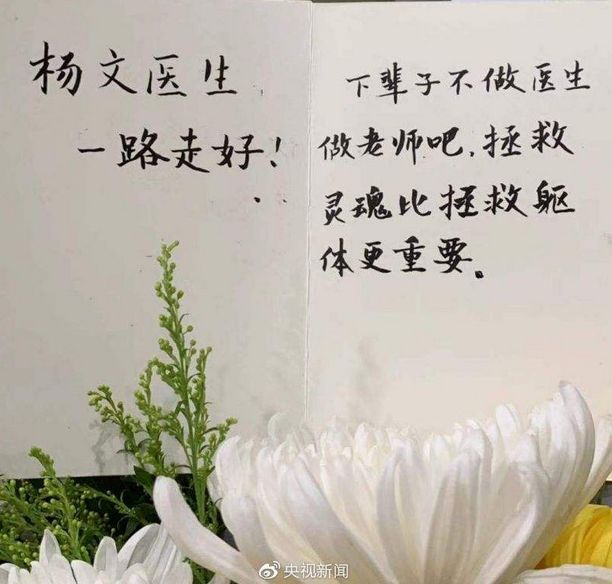 杨文医生
一路走好!
下辈子不做医生
做老师吧,拯救
灵魂比拯救躯
体更重要。
央视新闻